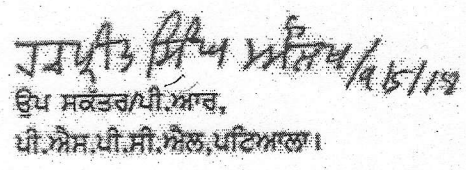 ਹਰਪ੍ਰੀਤ ਸਿੰਘ /9/5/18
ਉਪ ਸਕੱਤਰ/ਪੀ.ਆਰ,
ਪੀ.ਐਸ.ਪੀ.ਸੀ.ਐਲ,ਪਟਿਆਲਾ।